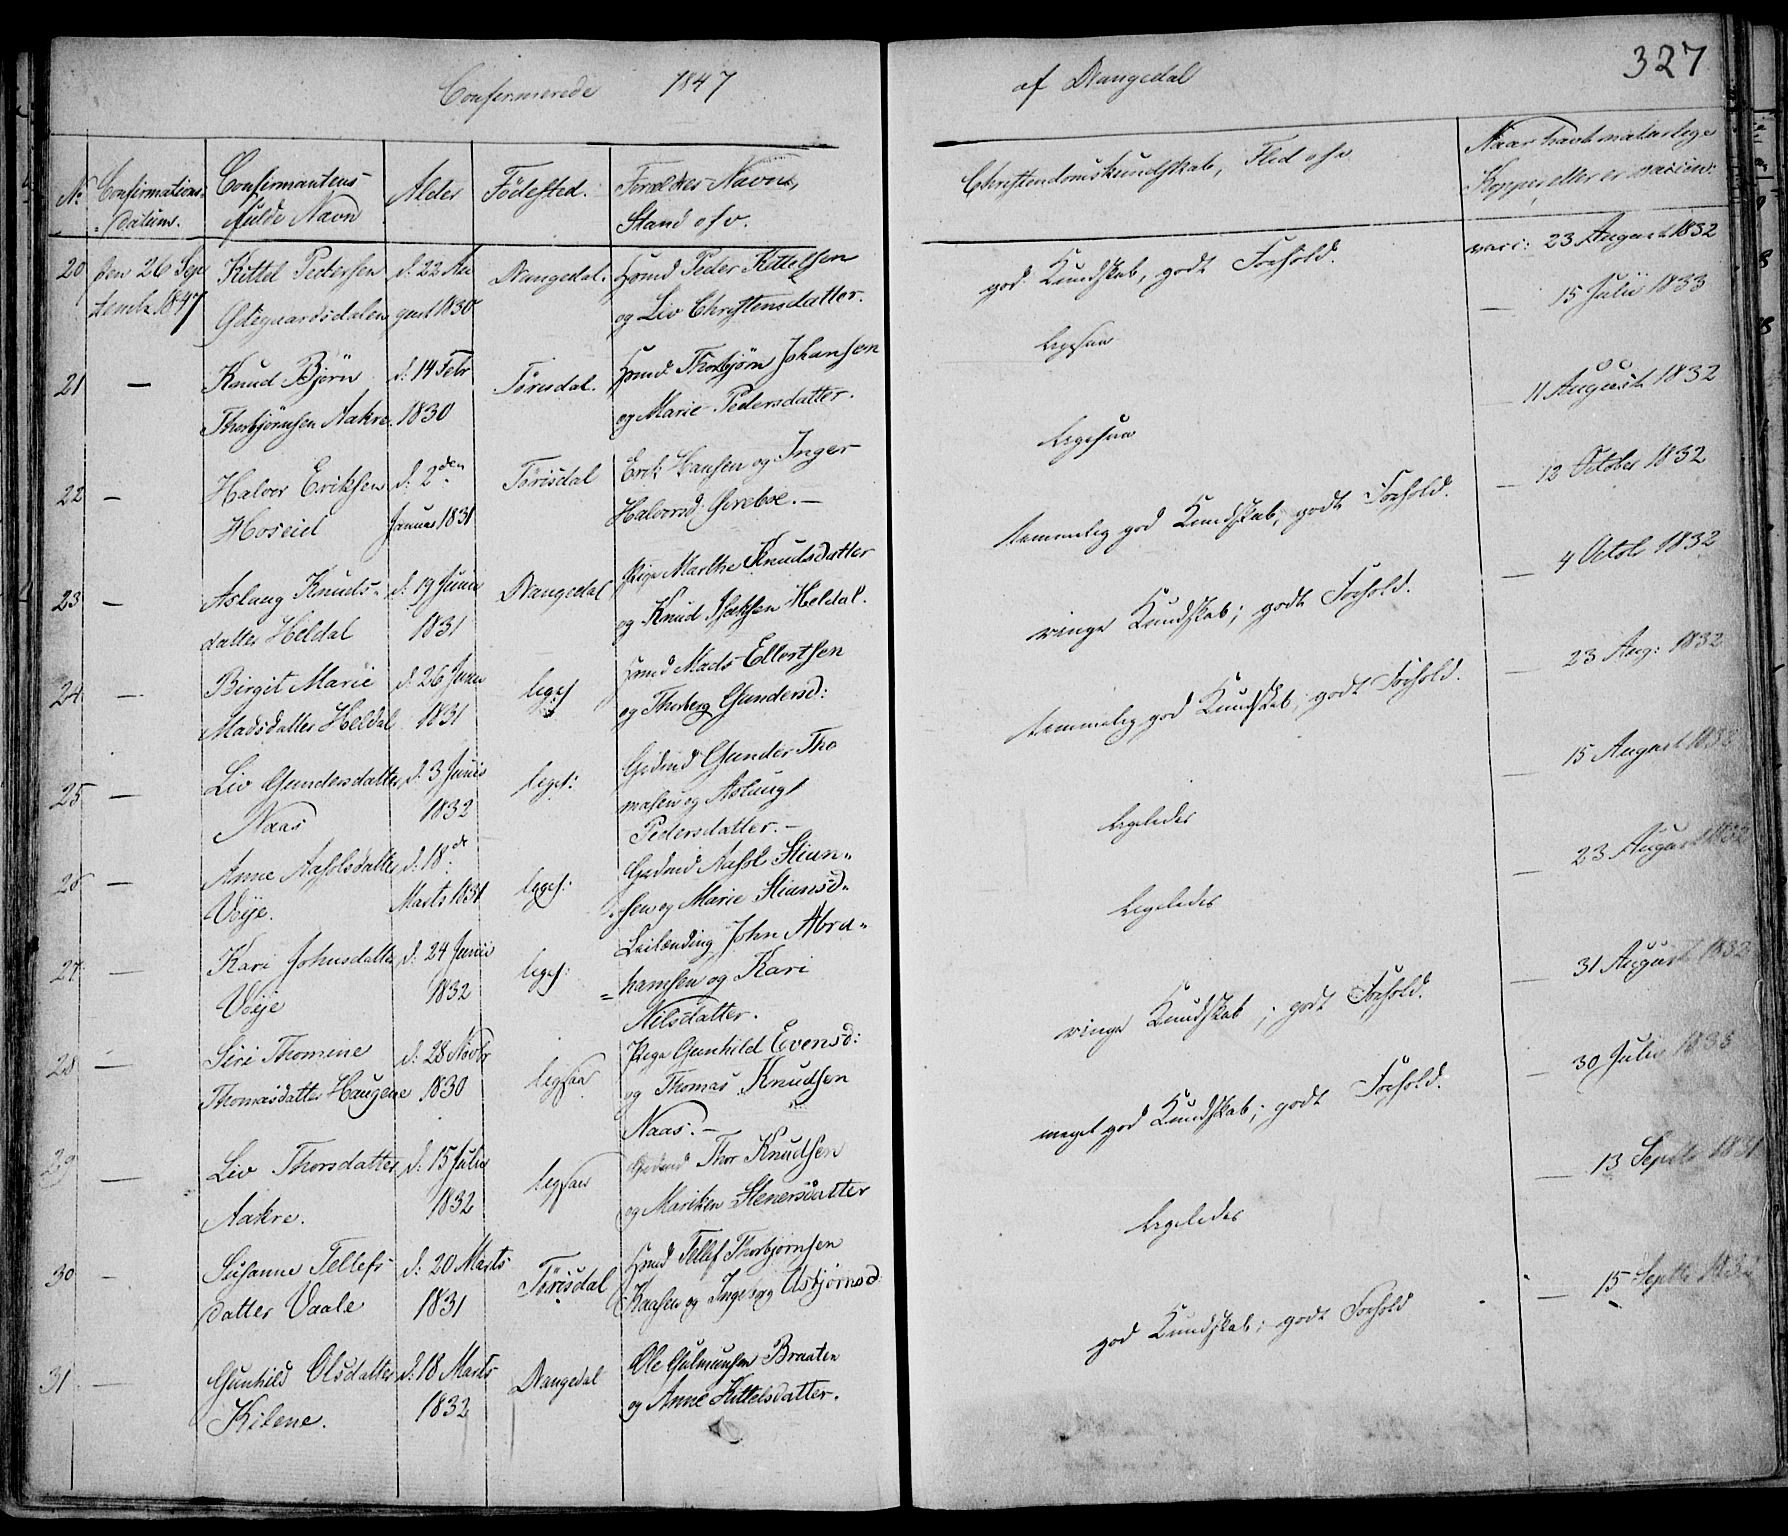 327
Confirmerede 1847 af Drangedal
No Confirmations- datum. Confirmantens fulde Navn Alder Fødested. Forældres Navne, Stand osv. Christendomskundskab, Flid osv Naar havt naturlige Kopper eller er vaccin:
20 den 26 Sep- Kittel Pedersen d. 22 Au- Drangedal. Gmd Peder Kittelsen god Kundskab, godt Forhold. vacc: 23 August 1832
temb. 1847 Ødegaardsdalen gust 1830 og Liv Christensdatter.
21 — Knud Bjørn d. 14 Febr Tørisdal. Gmd Thorbjørn Johansen ligesaa — 15 Julii 1833
Thorbjørnsen Aakre. 1830 og Marie Pedersdatter.
22 — Halvor Eriksen d. 2den Tørisdal Erik Hansen og Inger ligesaa 11 August 1832
Hoseid Januar 1831 Halvorsd. —
23 — Aslaug Knuds- d. 19 Junii Drangedal Pige Marthe Knudsdatter temmelig god Kundskab, godt Forhold. — 13 October 1832
datter Heldal 1831 og Knud Isaksen Heldal.
24 — Birgit Marie d. 26 Junii liges Gmd Mads Ellertsen ringe Kundskab; godt Forhold. — 4 Octob 1832
Madsdatter Heldal 1831 og Thorberg Gundersd:
25 — Liv Gundersdatter d. 3 Junii liges: Gunder Tho temmelig god Kundskab, godt Forhold. — 23 Aug: 1832
Naas 1832 masen og Aslaug
Pedersdatter. —
26 — Anne Aasolsdatter d. 18de liges: Aasol Stian- ligeledes — 15 August 1833
Voje. Marts 1831 sen og Marie Stiansd-
27 — Kari Johnsdatter d. 24 Junii liges: Leilænding John Abra- ligeledes — 23 August 1832
Voje 1832 hamsen og Kari
Nilsdatter.
28 — Siri Thomine d. 28 Novbr ligesaa Pige Gunhild Evensd: ringe Kundskab; godt Forhold. — 31 August 1832
Thomasdatter Haugene 1830 og Thomas Knudsen
Naas. —
29 — Liv Thorsdatter d. 15 Julii ligesaa Thor Knudsen meget god Kundskab; godt Forhold. — 30 Julii 1833
Aakre. 1832 og Mariken Stenersdatter
30 — Susanne Tellefs- d. 20 Marts Tørisdal Gmd Tellef Thorbjørnsen ligeledes — 13 Septb 1831
datter Vaale 1831 Kaasen og Ingeborg Asbjørnsd:
31 — Gunhild Olsdatter d. 18 Marts Drangedal Ole Braaten god Kundskab; godt Forhold — 15 Septb
Kilene. 1832 og Anne Kittelsdatter.